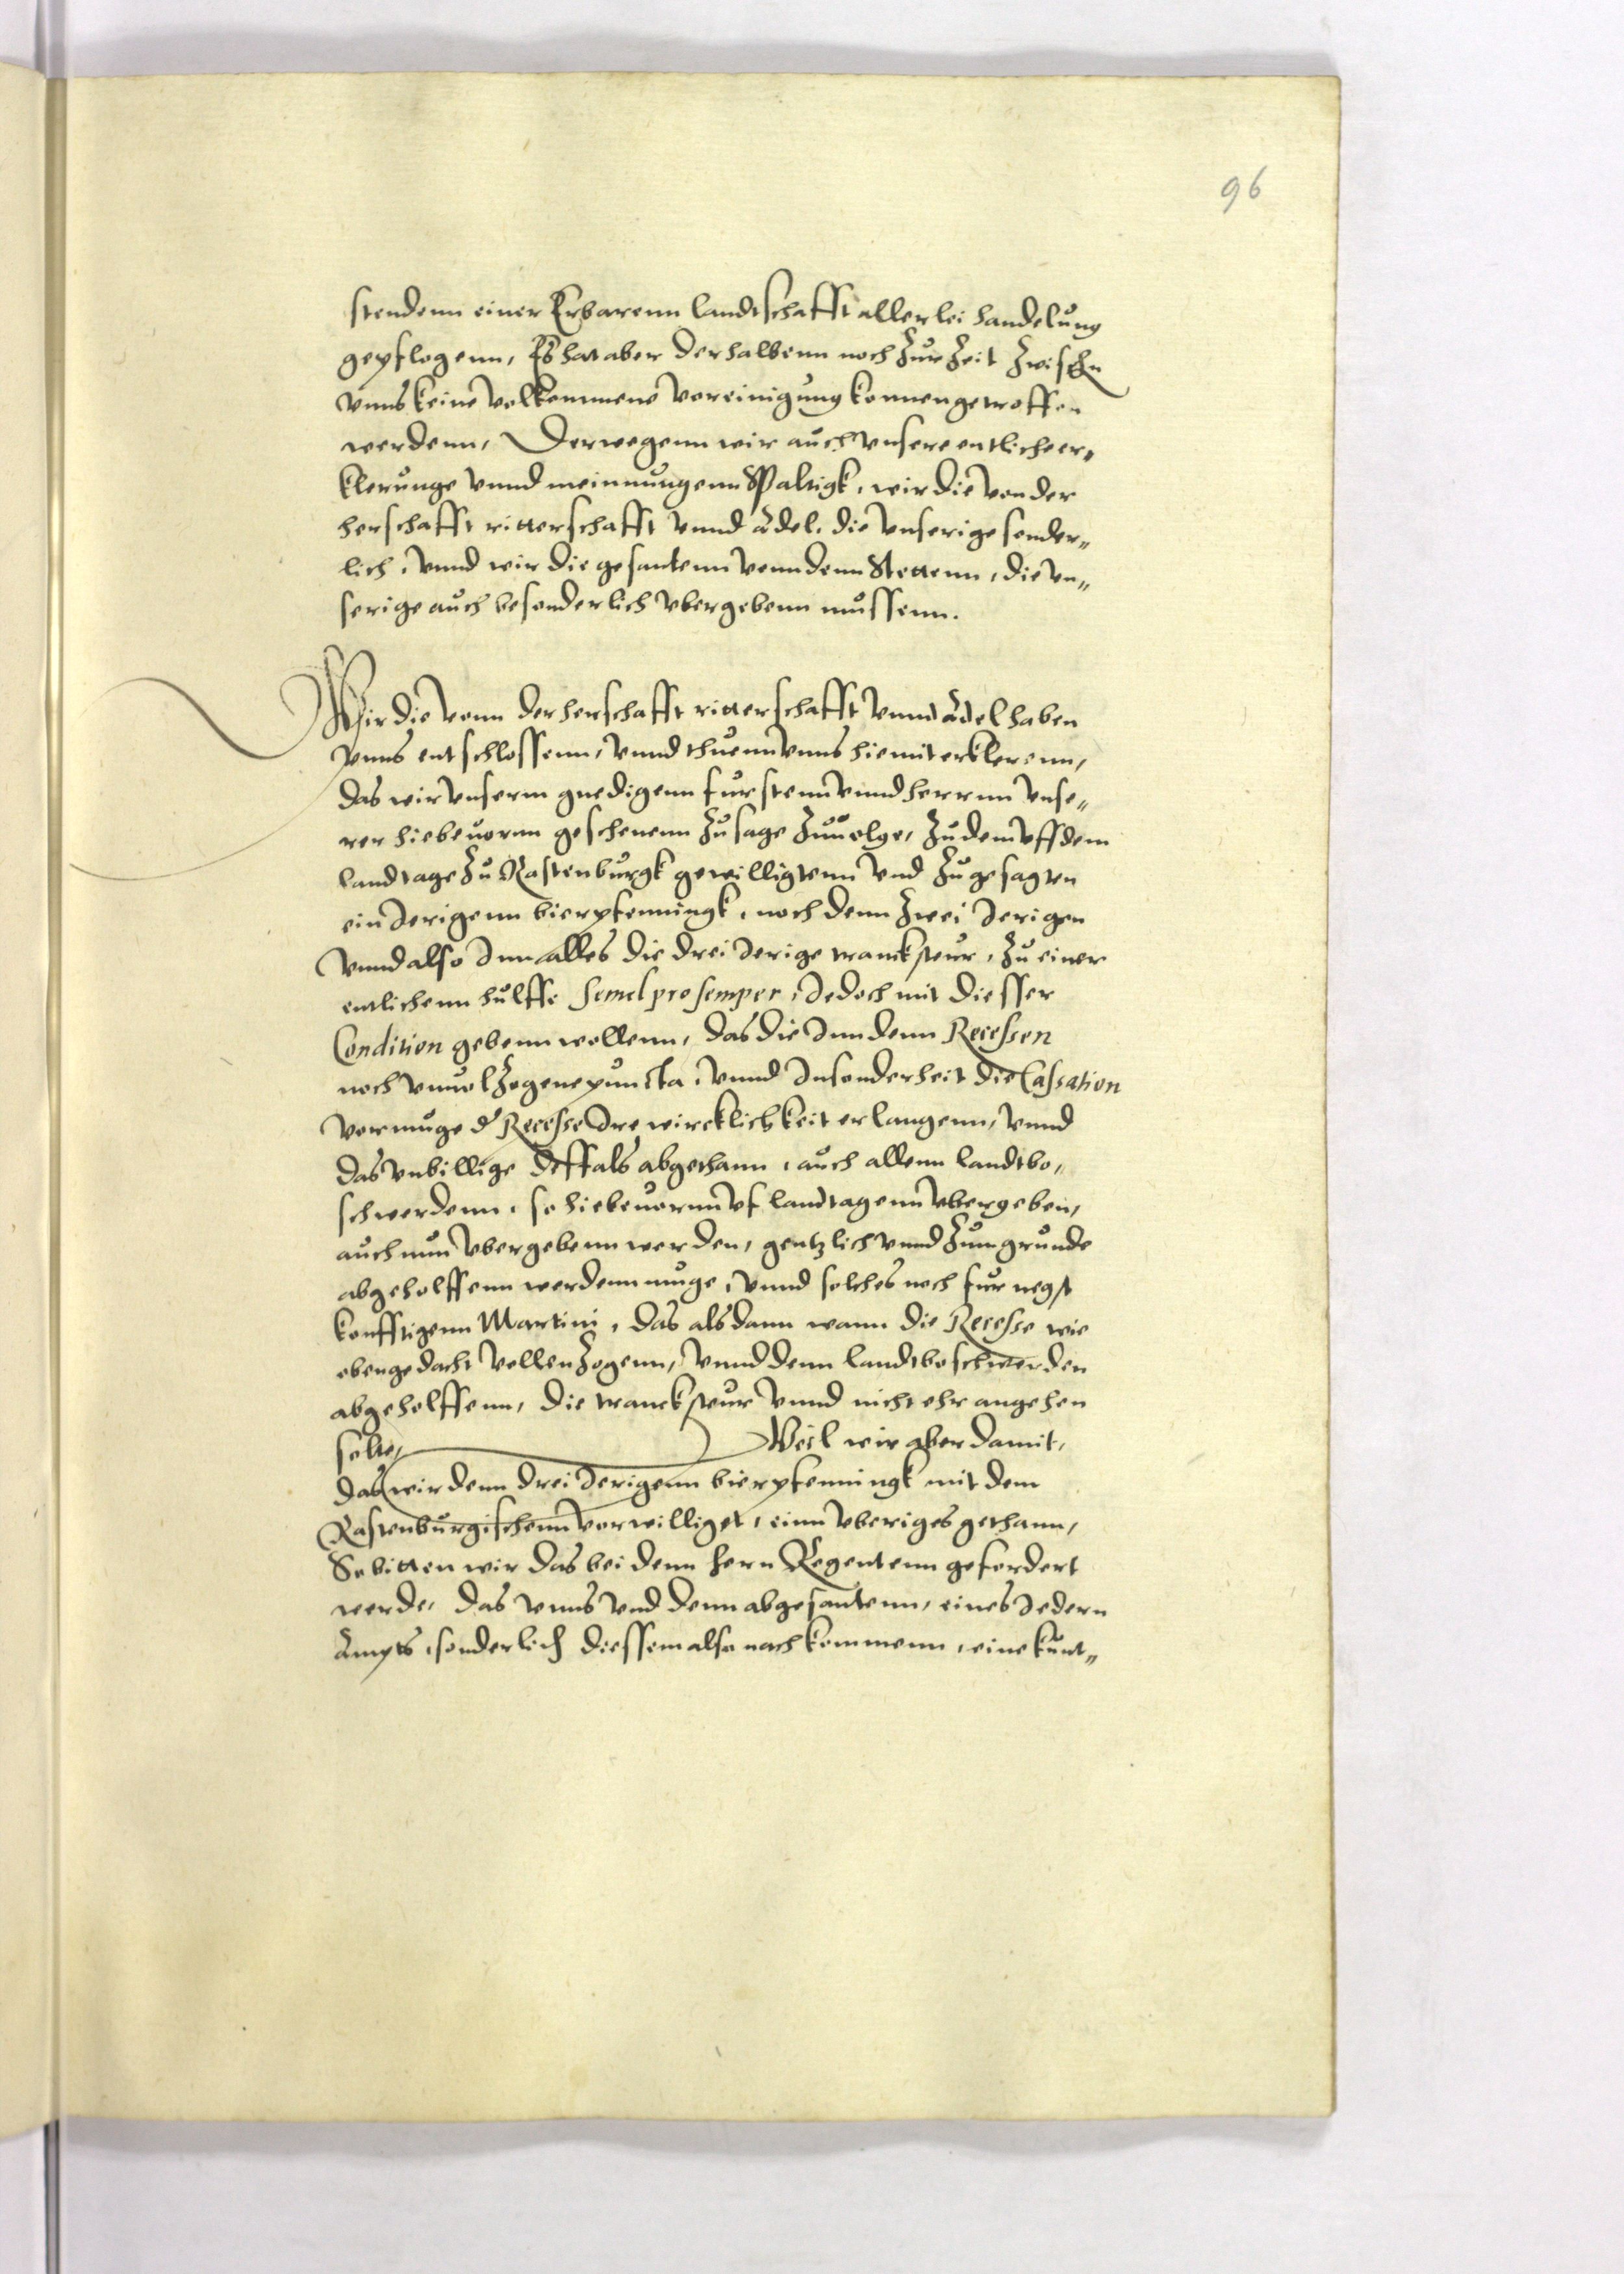 96
stendenn einer Erbarenn landtschafft allerlei handelung
gepflogenn, Es hat aber derhalbenn noch zur Zeit zwischn
vnns keine volkommene voreinigung konnen getroffen
werdenn, Derwegenn wir auch vnsere entliche er¬
klerunge vnnd meinnungenn Spaltigk, wir die von der
herschafft ritterschafft vnnd Adel, die vnserige sonder¬
lich, vnnd wir die gesantenn vonn denn Stettenn, die vn¬
serige auch besonderlich vbergebenn mussenn.
Wir die vonn der herschafft ritterschafft vnnd Adel haben
vnns entschlossenn, vnnd thuenn vnns hiemit erklerenn,
das wir vnserm gnedigenn fursten vnnd herrnn vnse¬
rer hiebeuornn geschenenn zusage zuuolge, zu dem vff dem
landtage zu Rastenburgk gewilligtenn vnd zugesagten
ein Jerigenn bierpfenningk, noch denn zwei Jerigen
vnnd also Inn alles die drei Jerige tranksteur, zu einer
entlichenn hulffe Semel pro semper, Jedoch mit diesser
Condition gebenn wollenn, das die Inn denn Recessen
noch vnuolzogene puncta, vnnd Insonderheit die Cassation
vormuge d' Recesse Ire wircklichkeit erlangenn, vnnd
das vnbillige desfals abgethann, auch allenn landtbe¬
schwerdenn, so hiebeuornn vf landtagenn vbergeben,
auch nun vbergebenn werden, gentzlich vnnd zum grunde
abgeholffenn werdenn muge, vnnd solches noch fur negst
konfftigenn Martini, das alsdann wann die Recesse wie
obengedacht vollenzogenn, vnnd denn landtbeschwerden
abgeholffenn, die tranksteur vnnd nicht ehr angehen
solte, Weil wir aber damit,
das wir denn drei Jerigenn bierpfenningk mit dem
Rastenburgischenn vorwilliget, einn vberiges gethann,
So bitten wir das bei denn hern Regentenn gefordert
werde, das vnns vnd denn abgesantenn, eines Jedern
Ampts, sonderlich diessem also nachkommenn, eine kunt¬